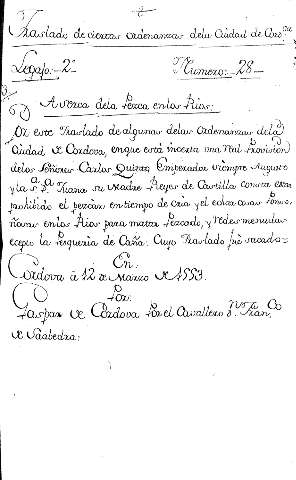 Traslado de ciertas ordenanzas dela Ciudad de Cord.
Legajo. 2º Numero: 28
Acerca dela Pezca en los Rios:
De este Traslado de algunas delas Ordenanzas dela
Ciudad de Cordova, en que está incerta una Rl Provision
delos Señores Carlos Quinto Emperador siempre Augusto
y la S.a D.a Juana su Madre Reyes de Castilla consta estar
prohibido el pezcar en tiempo de cria y el echar cosas ponzo
ñosas en los Rios para matar Pezcado, y redes menudas
ecepto la pesqueria de Caña: Cuyo Traslado fué sacado
En:
Cordova à 12 de Marzo de 1553.
Por:
Gaspar de Cordova por el Cavallero D.n Fran.co
de Saabedra: